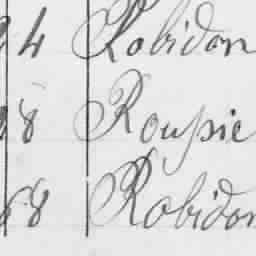 4 Robidou
8 Roupie
68 Robidou